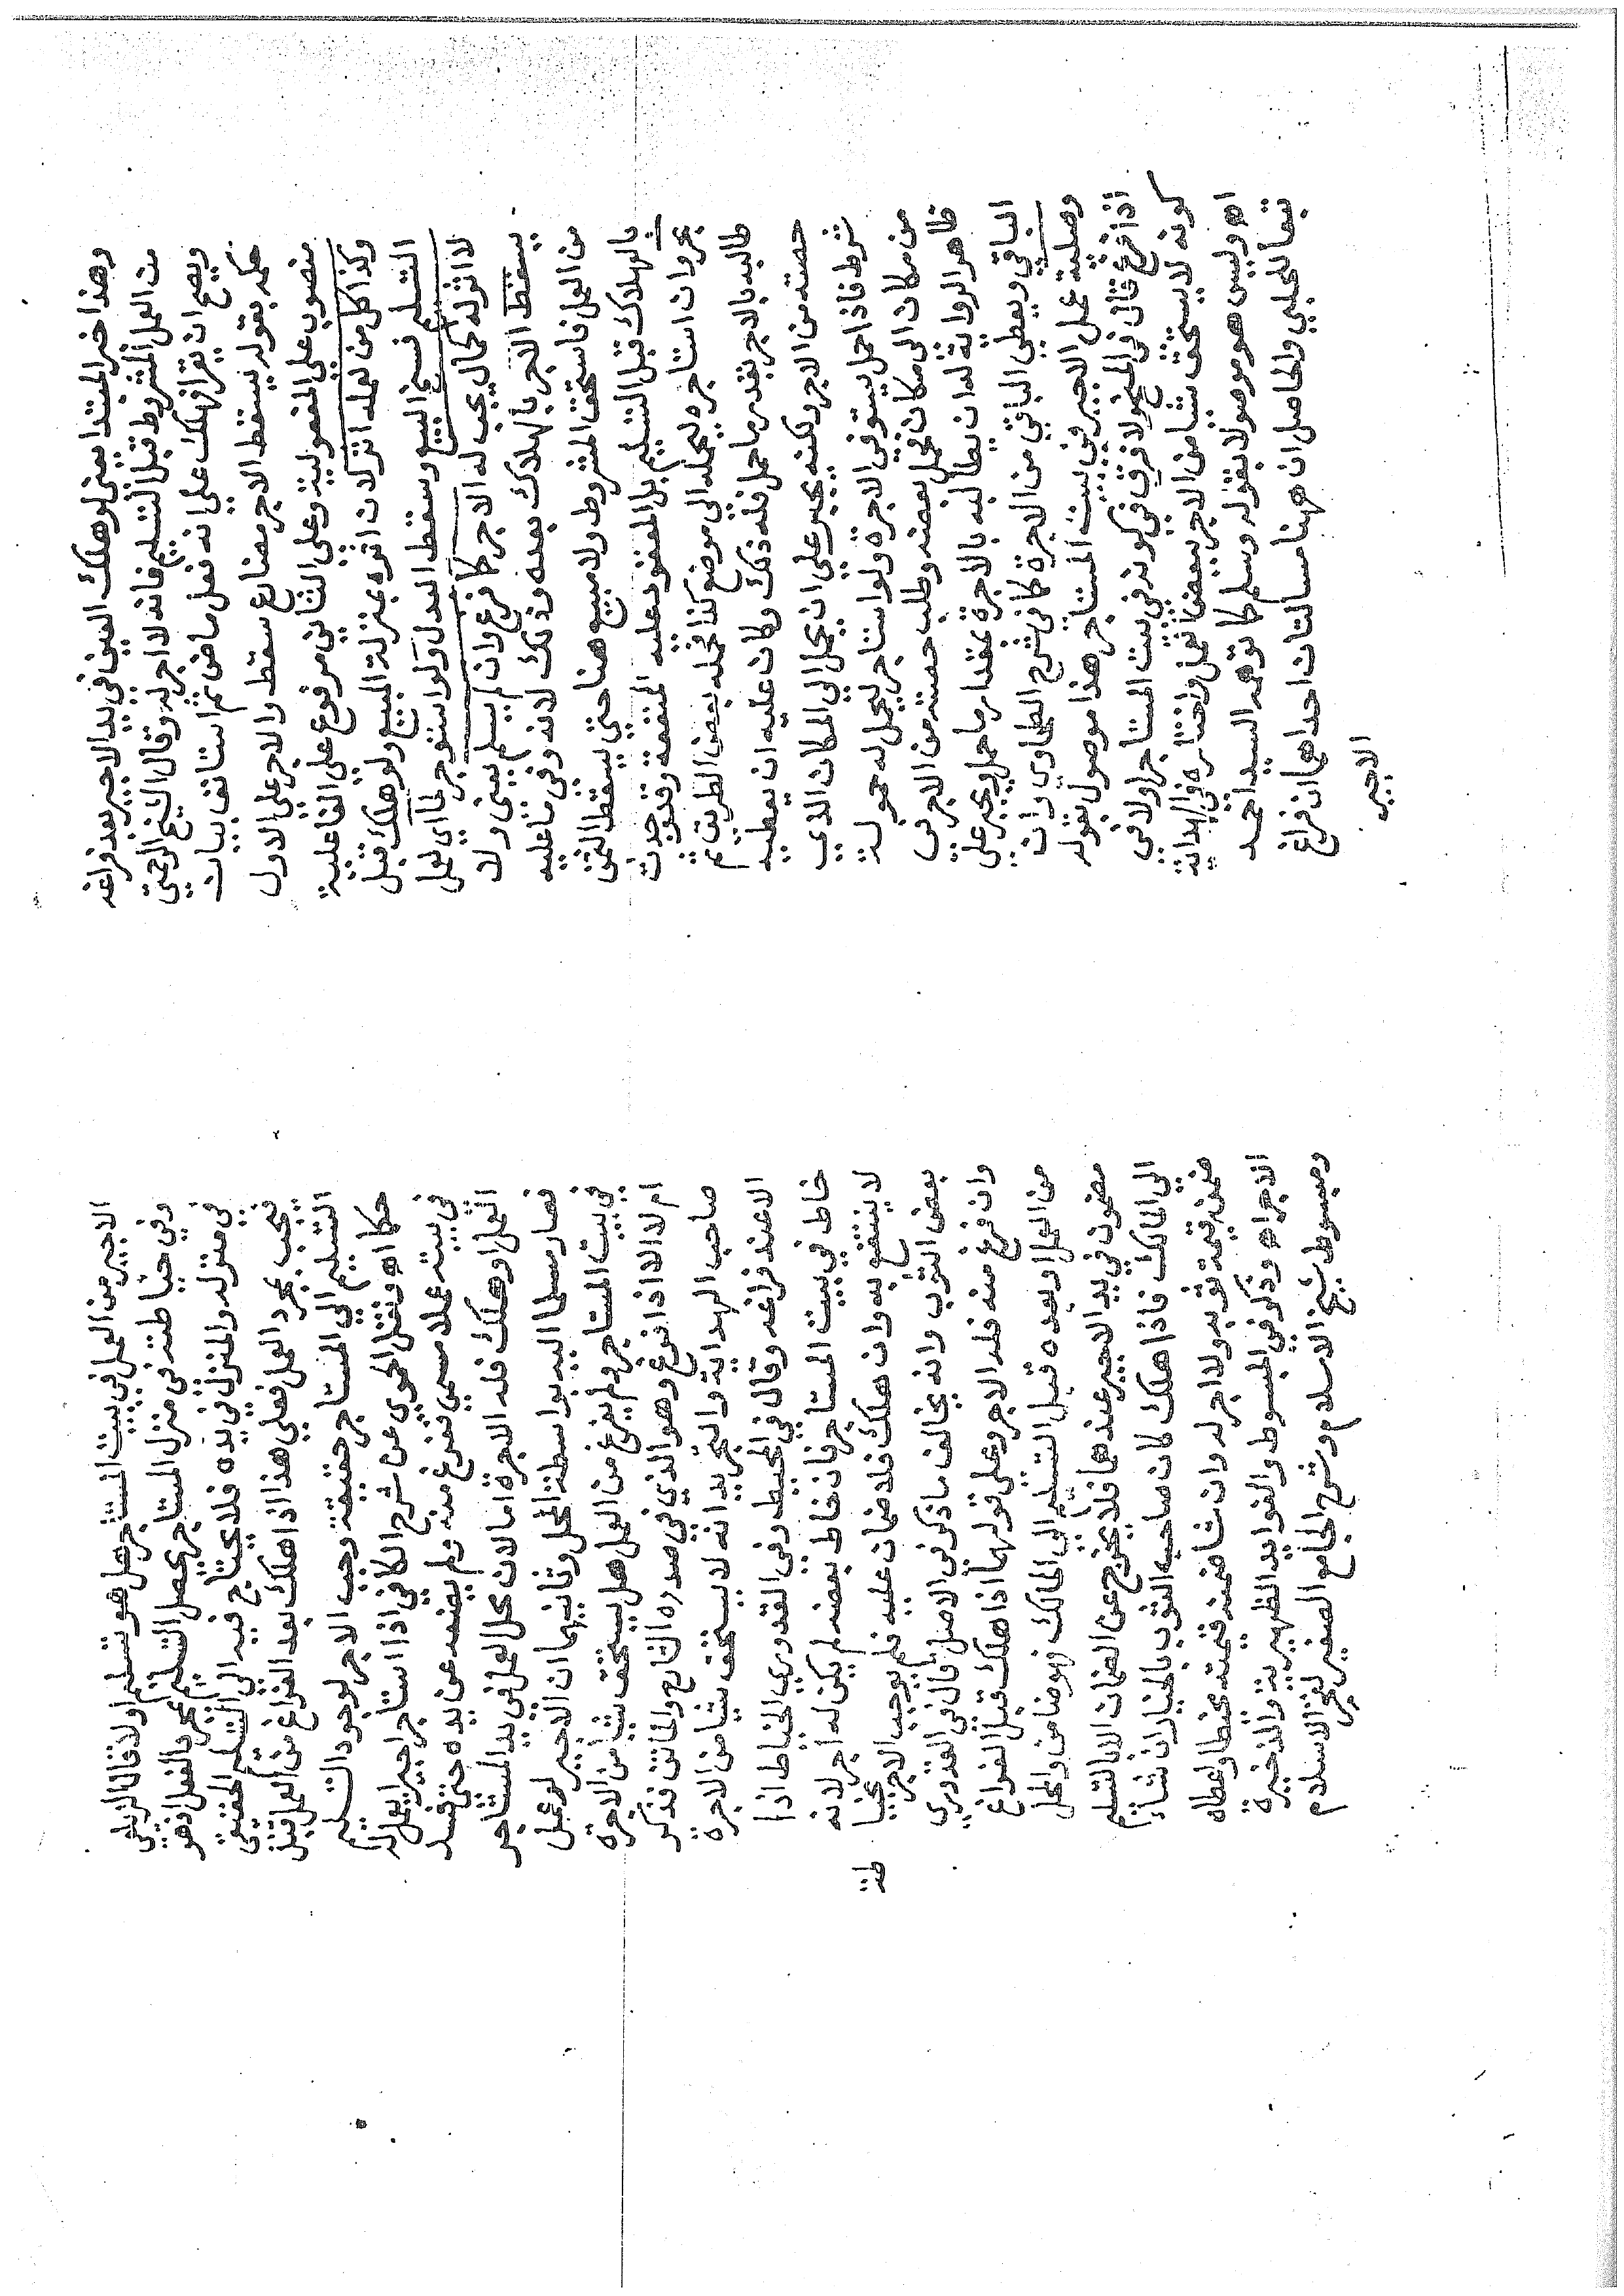 وهذا خبر المبتدا يعني لو هلك العين في يد الاجير بعد فراغه
من العمل المشروط قبل التسليم فانه لا اجر له وقال الشيخ الرحمتي
ويصح ان يقرا فهلك على انه فعل ماض ثم استانف بيان
حكمه بقوله يسقط الاجر مضارع سقط والاجر على الاول
منصوب على المفعولية وعلى الثاني مرفوع على الفاعلية
وكذا كل من لعمله اثر لان اثره بمنزلة المبيع ولو هلك قبل
التسليم فسخ البيع وسقط البدل ولو استوجر لما اي لعمل
لا اثر له كحمال يجب له الاجر كما فرغ وان لم يسلم يعني ولا
يسقط الاجر بالهلاك بعده وذلك لانه وفي ما عليه
من العمل فاستحق المشروط ولا مبيع هنا حتى يسقط الثمن
بالهلاك قبل التسليم بل المعقود عليه المنفعة وقد وجدت
بحر وان استاجره ليحمله الى موضع كذا فحمله بعض الطريق ثم
طالبه بالاجر بقدر ما حمل فله ذلك وكان عليه ان يعطيه
حصته من الاجر ولكنه يجبر على ان يحمل الى المكان الذي
شرط فاذا حمل يستوفي الاجرة ولو استاجر ليحمل له حمولة
من مكان الى مكان فحمل بعضه وطلب حصته من الاجر في
ظاهر الرواية له ان يطالبه بالاجرة بمقدار ما حمل ويجبر على
الباقي ويعطى الباقي من الاجرة كما في شرح الطحاوي وان
وصلية عمل الاجير في بيت المستاجر هذا موصول بقوله
اذا فرغ قال في المنح ولا فرق في كونه في بيت المستاجر او لا في
كونه لا يستحق شيا من الاجر ببعض العمل واختاره في الهداية
اهـ وليس هو موصولا بقوله وسلم كما توهمه السيد احمد
تبعا للحلبي والحاصل ان ههنا مسالتان احداهما ان فراغ
الاجير
الاجير من العمل في بيت المستاجر هل هو تسليم او لا قال الزيلعي
وفي خياطته في منزل المستاجر يحصل التسليم بمجرد العمل اذ هو
في منزله والمنزل في يده فلا يحتاج فيه الى التسليم الحقيقي
فيجب بمجرد العمل فعلى هذا اذا هلك بعد الفراغ من العمل قبل
التسليم الى المستاجر حقيقة وجب الاجر لوجود التسليم
حكما اهـ ونقل الحموي عن شرح الكافي اذا استاجر اجيرا يعمل له
في بيته عملا مسمى ففرغ منه ولم يضعه عن يده حتى فسد
العمل او هلك فله الاجرة اما لان محل العمل في يد المستاجر
فصار مسلما اليه بواسطة المحل وثانيهما ان الاجير لو عمل
في بيت المستاجر ولم يفرغ من العمل هل يستحق شيا من الاجرة
ام لا الا اذا فرغ وهو الذي في صدره الشارح والماتن فذكر
صاحب الهداية والتجريد انه لا يستحق شيا من الاجرة
الا عند فراغه وقال في المحيط وفي القدوري الخياط اذا
خاط في بيت المستاجر فان خاط بعضه لم يكن له اجر لانه
لا ينتفع به وان هلك فلا ضمان عليه فلم يوجب الاجر بخيا
طة
بعض الثوب وانه يخالف ما ذكر في الاصل قال في القدوري
وان فرغ منه فله الاجر وعلى قولهما اذا هلك قبل الفراغ
من العمل او بعده قبل التسليم الى المالك فهو ضامن والمحل
مضمون في يد الاجير عندهما فلا يخرج عن الضمان الا بالتسليم
الى المالك فاذا هلك كان صاحب الثوب بالخيار ان شاء
ضمن قيمة ثوبه ولا اجر له وان شا ضمنه قيمته مخيطا واعطاه
الاجر اهـ وذكر في المبسوط والفوايد الظهيرية والذخيرة
ومبسوط شيخ الاسلام وشرح الجامع الصغير لفخر الاسلام